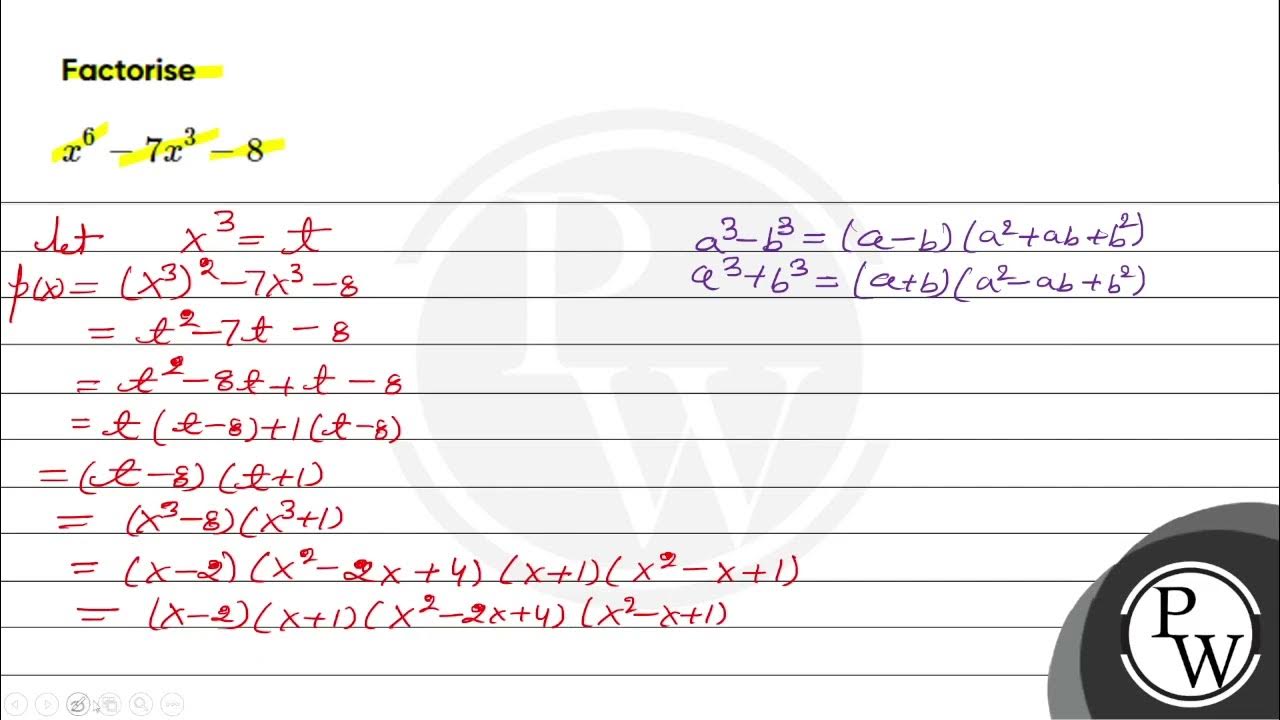 Factorise
x⁶ − 7x³ − 8
Let x³ = t
p(x) = (x³)² − 7x³ − 8
= t² − 7t − 8
= t² − 8t + t − 8
= t(t−8) + 1(t−8)
= (t−8)(t+1)
= (x³−8)(x³+1)
= (x−2)(x²−2x+4)(x+1)(x²−x+1)
= (x−2)(x+1)(x²−2x+4)(x²−x+1)
a³−b³ = (a−b)(a²+ab+b²)
a³+b³ = (a+b)(a²−ab+b²)
PW
PW